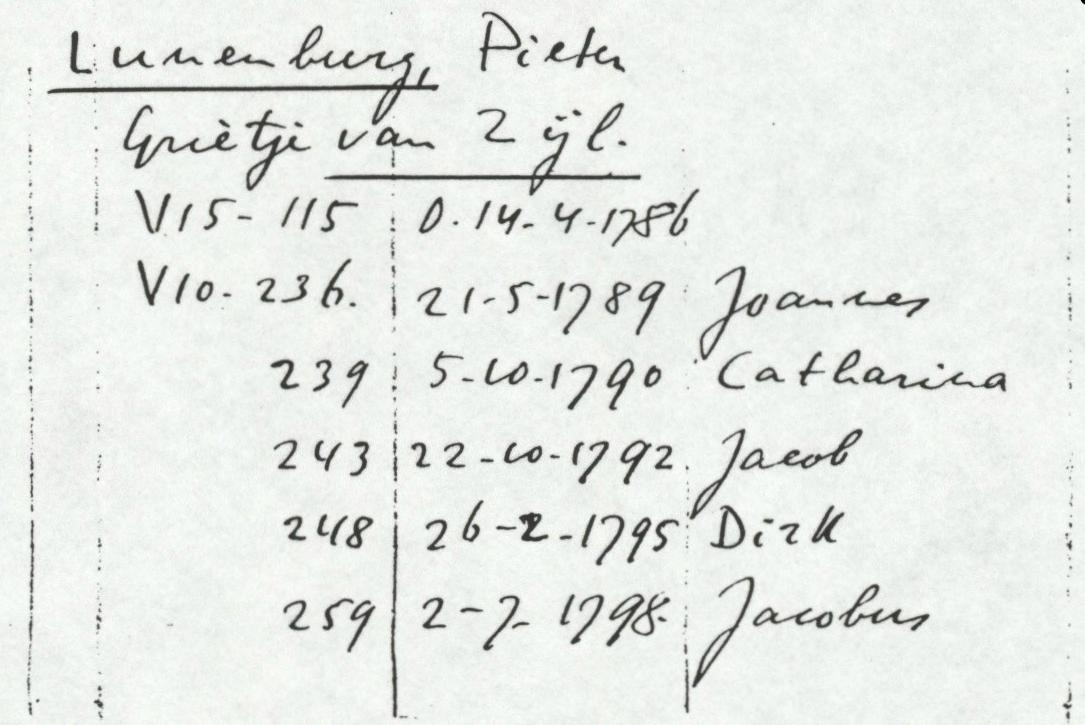 Lunenburg, Pieter
Grietje van Zijl.
V15-115 0.14-4-1786
V10-236. 21-5-1789 Joannes
239 5-10-1790 Catharina
243 22-10-1792. Jacob
248 26-2-1795 Dirk
259 2-7-1798. Jacobus